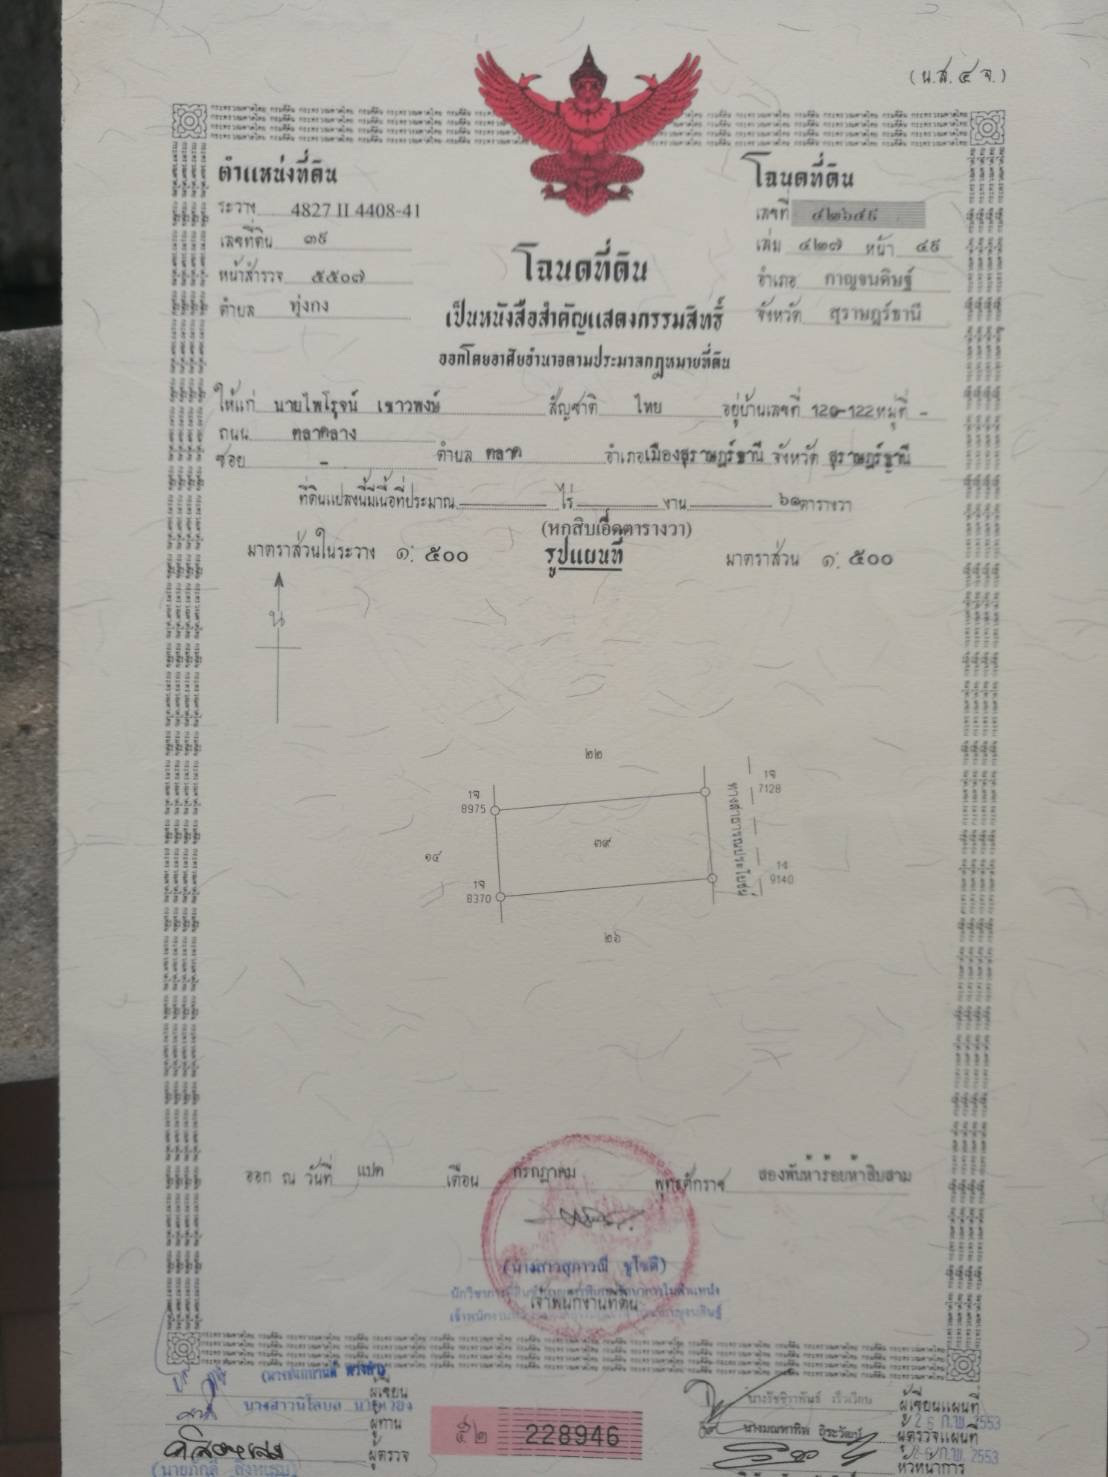 (น.ส. ๔ จ.)
ตำแหน่งที่ดิน
ระวาง 4827 II 4408-41
เลขที่ดิน ๓๙
หน้าสำรวจ ๕๕๐๗
ตำบล ทุ่งกง
โฉนดที่ดิน
เลขที่ ๔๒๖๔๙
เล่ม ๔๒๗ หน้า ๔๙
อำเภอ กาญจนดิษฐ์
จังหวัด สุราษฎร์ธานี
โฉนดที่ดิน
เป็นหนังสือสำคัญแสดงกรรมสิทธิ์
ออกโดยอาศัยอำนาจตามประมวลกฎหมายที่ดิน
ให้แก่ นายไพโรจน์ เชาวพงษ์ สัญชาติ ไทย อยู่บ้านเลขที่ 120-122 หมู่ที่ -
ถนน ตลาดล่าง
ซอย - ตำบล ตลาด อำเภอเมืองสุราษฎร์ธานี จังหวัด สุราษฎร์ธานี
ที่ดินแปลงนี้มีเนื้อที่ประมาณ ไร่ งาน ๖๑ ตารางวา
(หกสิบเอ็ดตารางวา)
มาตราส่วนในระวาง ๑: ๕๐๐ รูปแผนที่ มาตราส่วน ๑: ๕๐๐
น
๒๒
1จ
8975
1จ
7128
๑๔
๓๙
ทางสาธารณประโยชน์
1จ
8370
1จ
9140
๒๖
ออก ณ วันที่ แปด เดือน กรกฎาคม พุทธศักราช สองพันห้าร้อยห้าสิบสาม
(นางสาวสุภาวณี ชูโชติ)
เจ้าพนักงานที่ดิน
ผู้เขียน
ผู้ทาน
ผู้ตรวจ
๕๒ 228946
ผู้เขียนแผนที่
26 ก.พ. 2553
นางมณฑาทิพ
ผู้ตรวจแผนที่
26 ก.พ. 2553